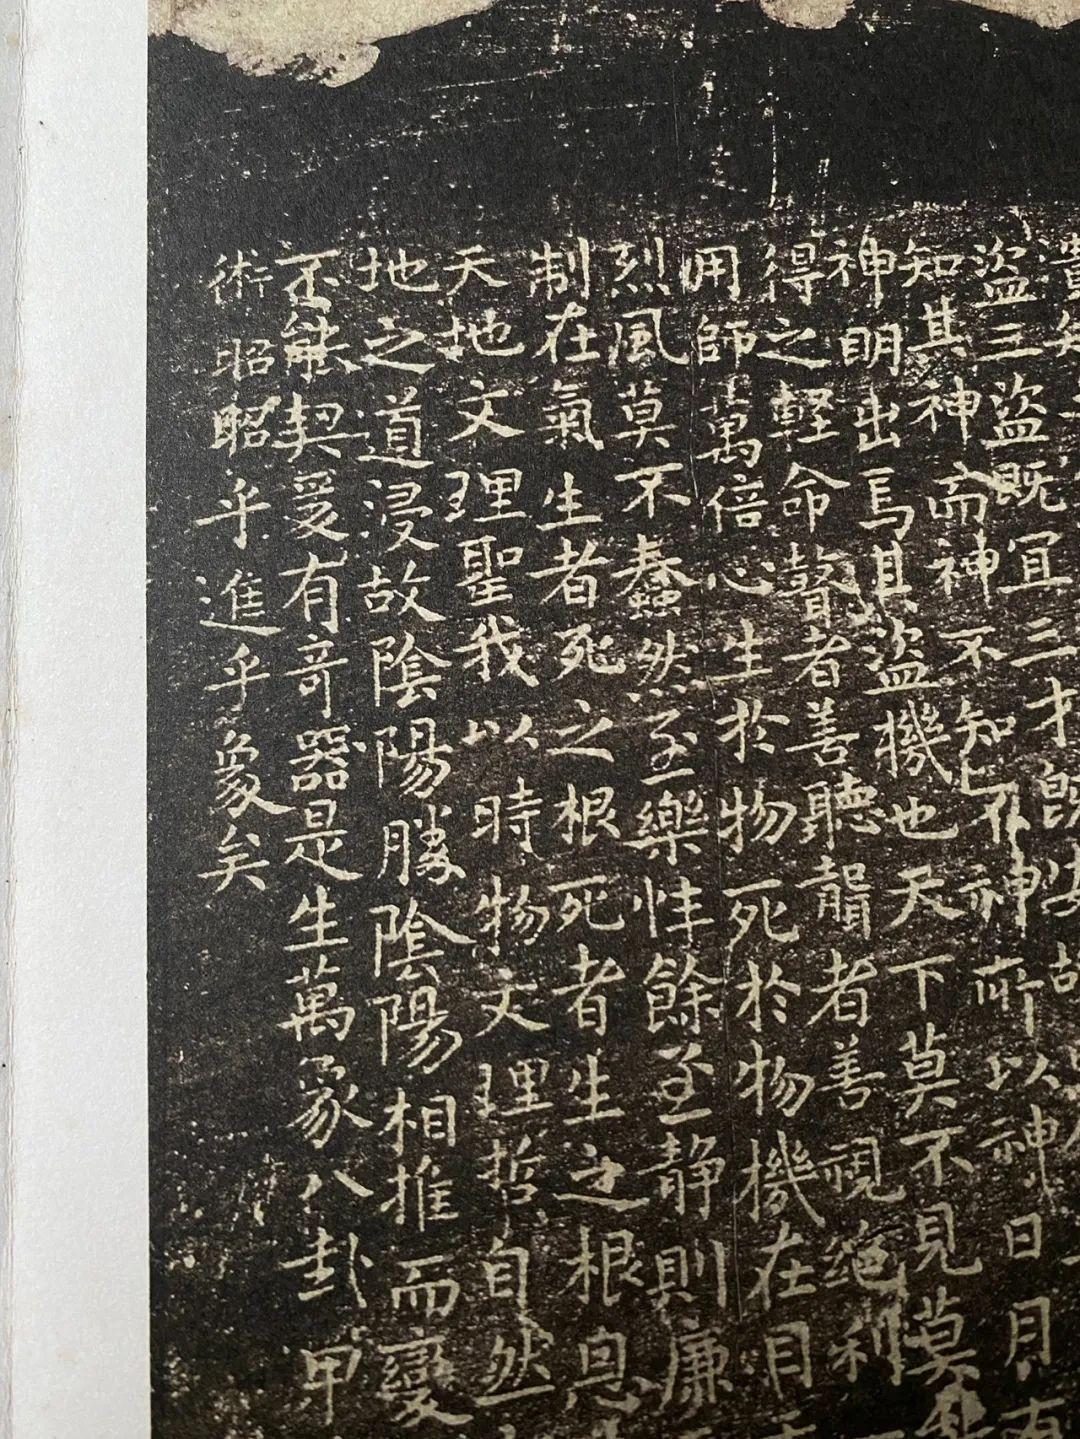 盜三盜既宜三才既安故
知其神而神不知不神所以神日月有
神明出焉其盜機也天下莫不見莫
得之輕命瞽者善聽聾者善視絕利
用師萬倍心生於物死於物機在目
烈風莫不蠢然至樂性餘至靜則廉
制在氣生者死之根死者生之根恩
天地文理聖我以時物文理哲自然
地之道浸故陰陽勝陰陽相推而變
不能契爰有奇器是生萬象八卦甲
術昭昭乎進乎象矣